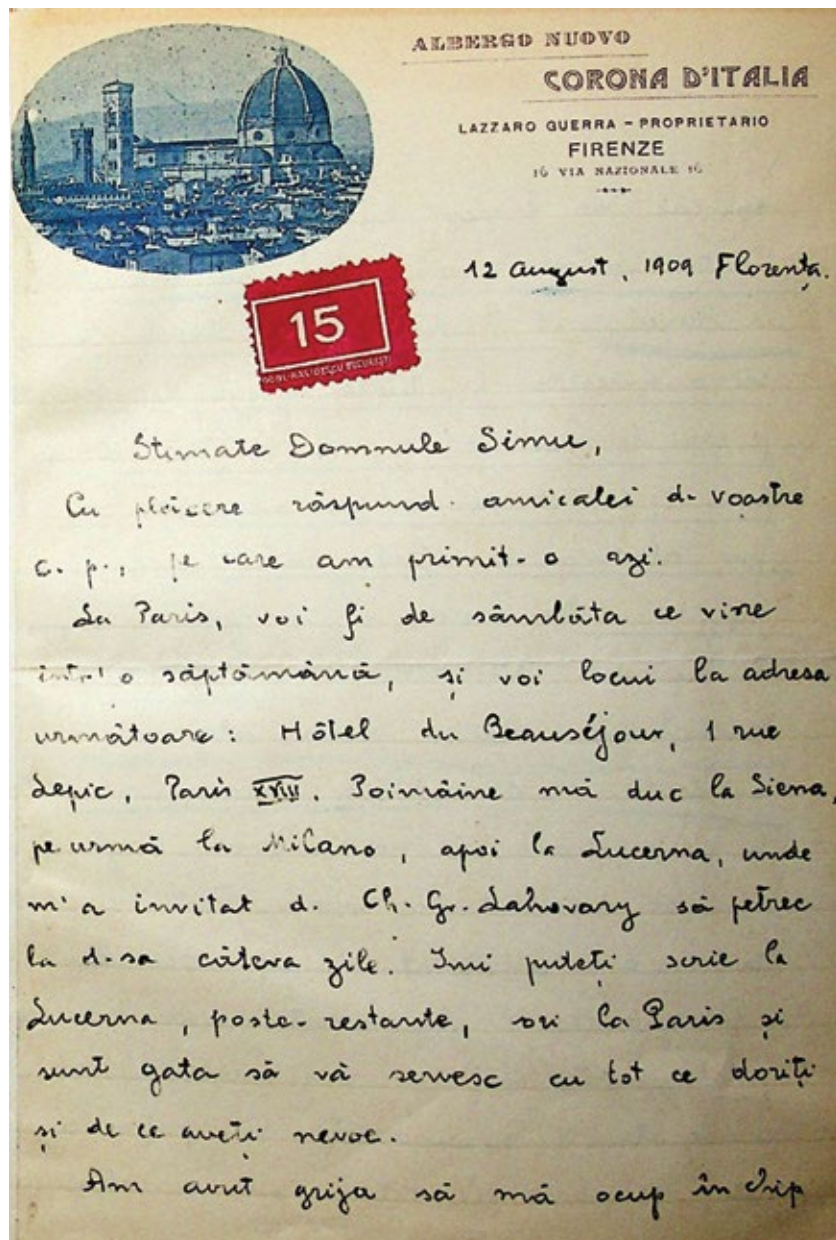 ALBERGO NUOVO
CORONA D'ITALIA
LAZZARO GUERRA - PROPRIETARIO
FIRENZE
16 VIA NAZIONALE 16
12 august, 1909 Florența.
15
Stimate Domnule Simu,
Cu plăcere răspund amicalei d-voastre
c. p., pe care am primit-o azi.
La Paris, voi fi de sâmbăta ce vine
într'o săptămână, și voi locui la adresa
următoare: Hôtel du Beauséjour, 1 rue
Lepic, Paris XVIII. Poimâine mă duc la Siena,
pe urmă la Milano, apoi la Lucerna, unde
m'a invitat d. Ch. Gr. Lahovary să petrec
la d-sa câteva zile. Imi puteți scrie la
Lucerna, poste-restante, ori la Paris și
sunt gata să vă servesc cu tot ce doriți
și de ce aveți nevoe.
Am avut grija să mă ocup în chip